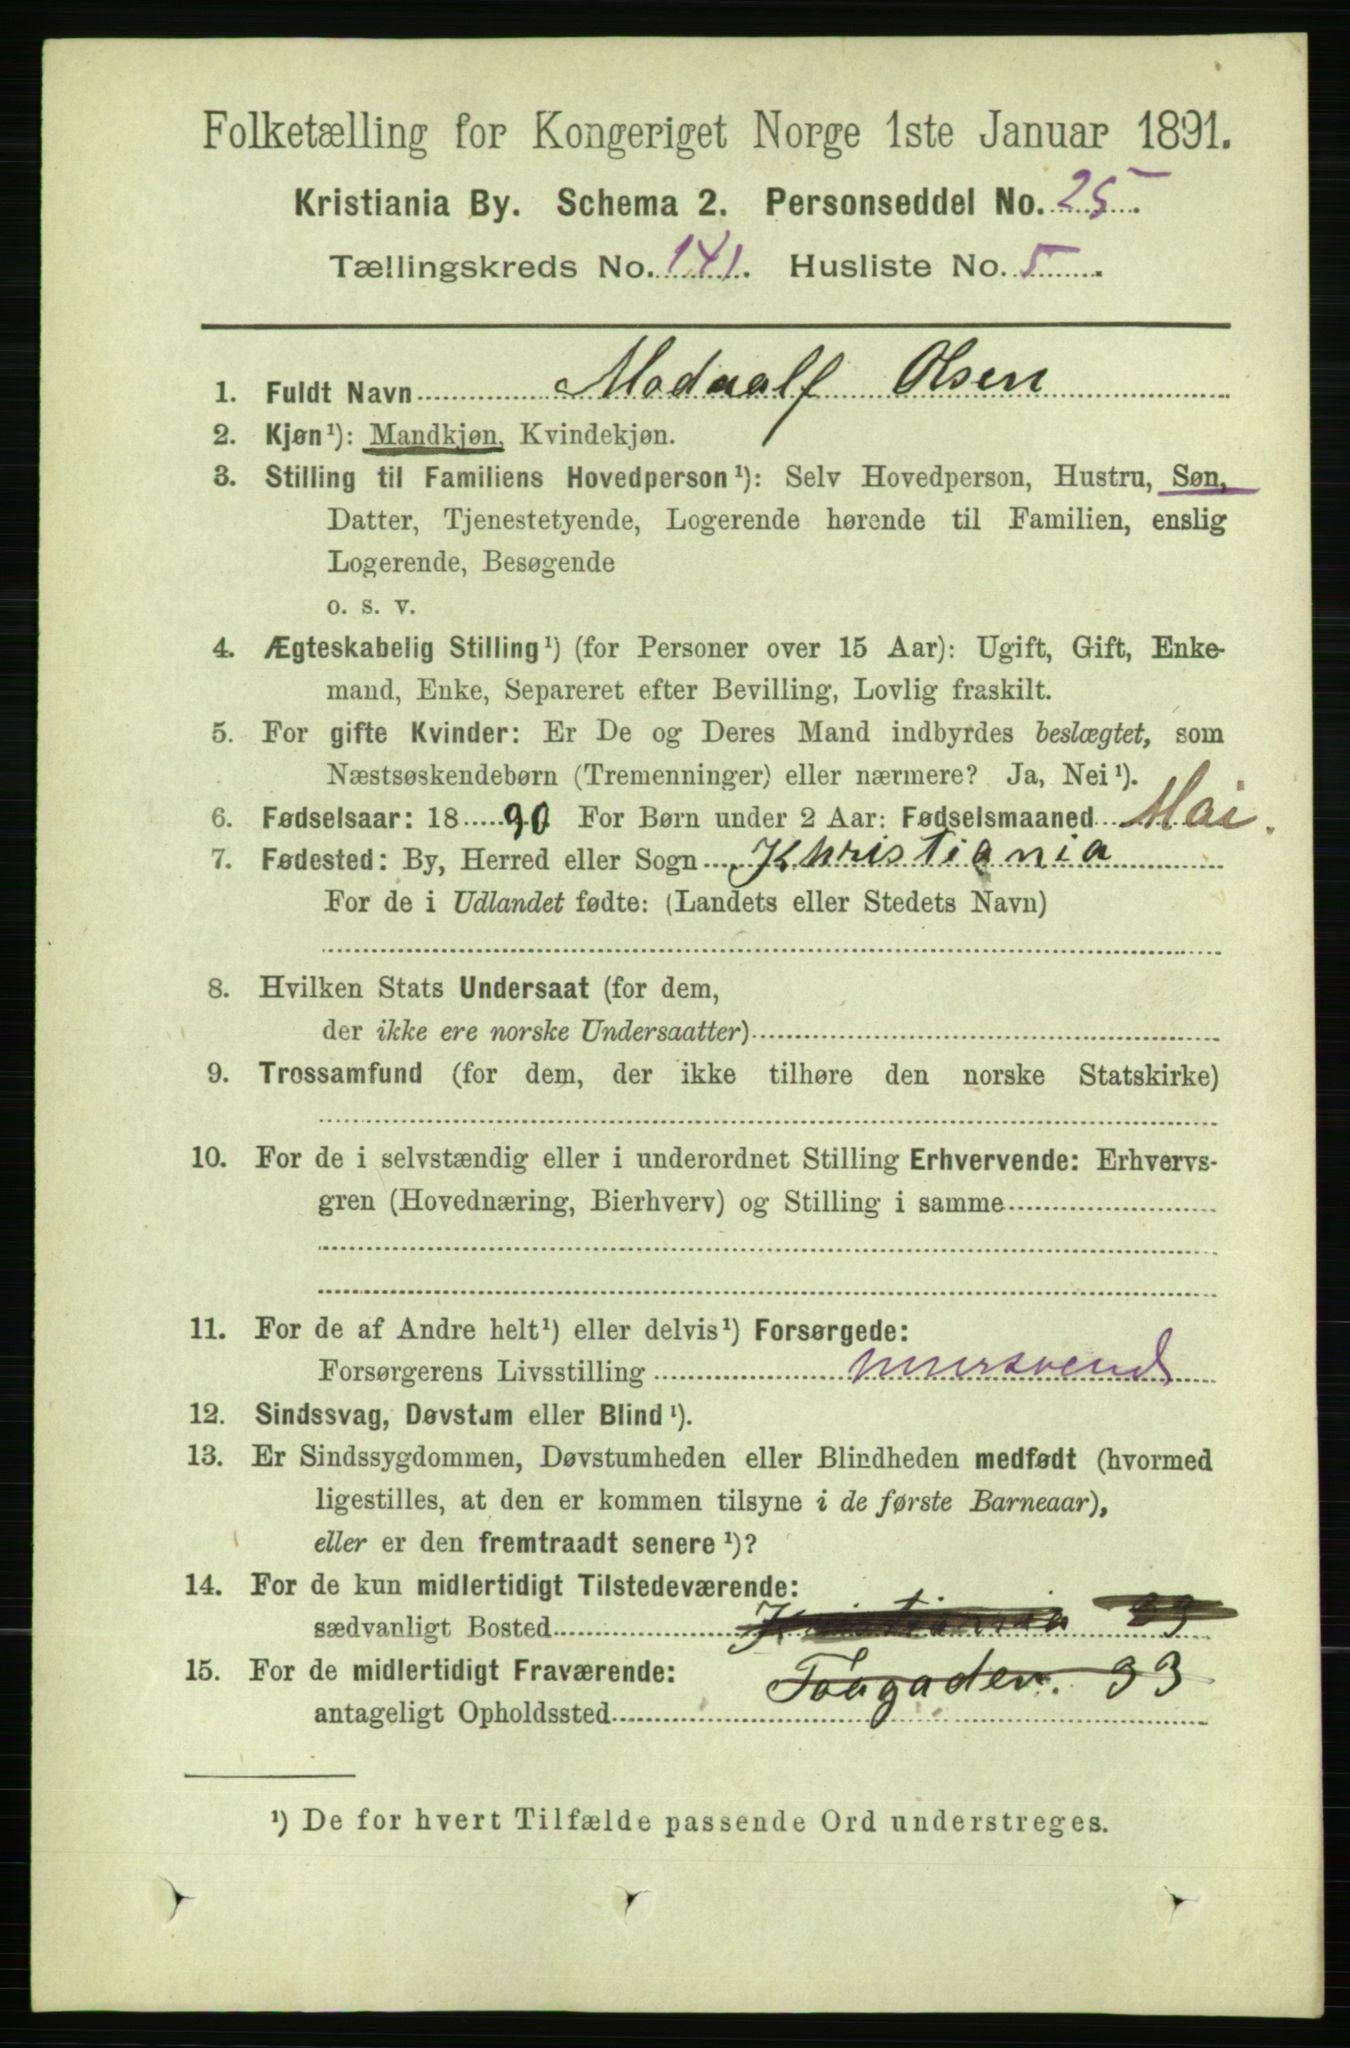 Folketælling for Kongeriget Norge 1ste Januar 1891.
Kristiania By. Schema 2. Personseddel No. 25.
Tællingskreds No. 141. Husliste No. 5.
1. Fuldt Navn Modualf Olsen
2. Kjøn¹): Mandkjøn, Kvindekjøn.
3. Stilling til Familiens Hovedperson¹): Selv Hovedperson, Hustru, Søn,
Datter, Tjenestetyende, Logerende hørende til Familien, enslig
Logerende, Besøgende
o. s. v.
4. Ægteskabelig Stilling¹) (for Personer over 15 Aar): Ugift, Gift, Enke-
mand, Enke, Separeret efter Bevilling, Lovlig fraskilt.
5. For gifte Kvinder: Er De og Deres Mand indbyrdes beslægtet, som
Næstsøskendebørn (Tremenninger) eller nærmere? Ja, Nei¹).
6. Fødselsaar: 1890 For Børn under 2 Aar: Fødselsmaaned Mai.
7. Fødested: By, Herred eller Sogn Khristiania
For de i Udlandet fødte: (Landets eller Stedets Navn)
8. Hvilken Stats Undersaat (for dem,
der ikke ere norske Undersaatter)
9. Trossamfund (for dem, der ikke tilhøre den norske Statskirke)
10. For de i selvstændig eller i underordnet Stilling Erhvervende: Erhvervs-
gren (Hovednæring, Bierhverv) og Stilling i samme
11. For de af Andre helt¹) eller delvis¹) Forsørgede:
Forsørgerens Livsstilling mursvend
12. Sindssvag, Døvstum eller Blind¹).
13. Er Sindssygdommen, Døvstumheden eller Blindheden medfødt (hvormed
ligestilles, at den er kommen tilsyne i de første Barneaar),
eller er den fremtraadt senere¹)?
14. For de kun midlertidigt Tilstedeværende:
sædvanligt Bosted Kristiania 33
15. For de midlertidigt Fraværende:
antageligt Opholdssted 33
¹) De for hvert Tilfælde passende Ord understreges.